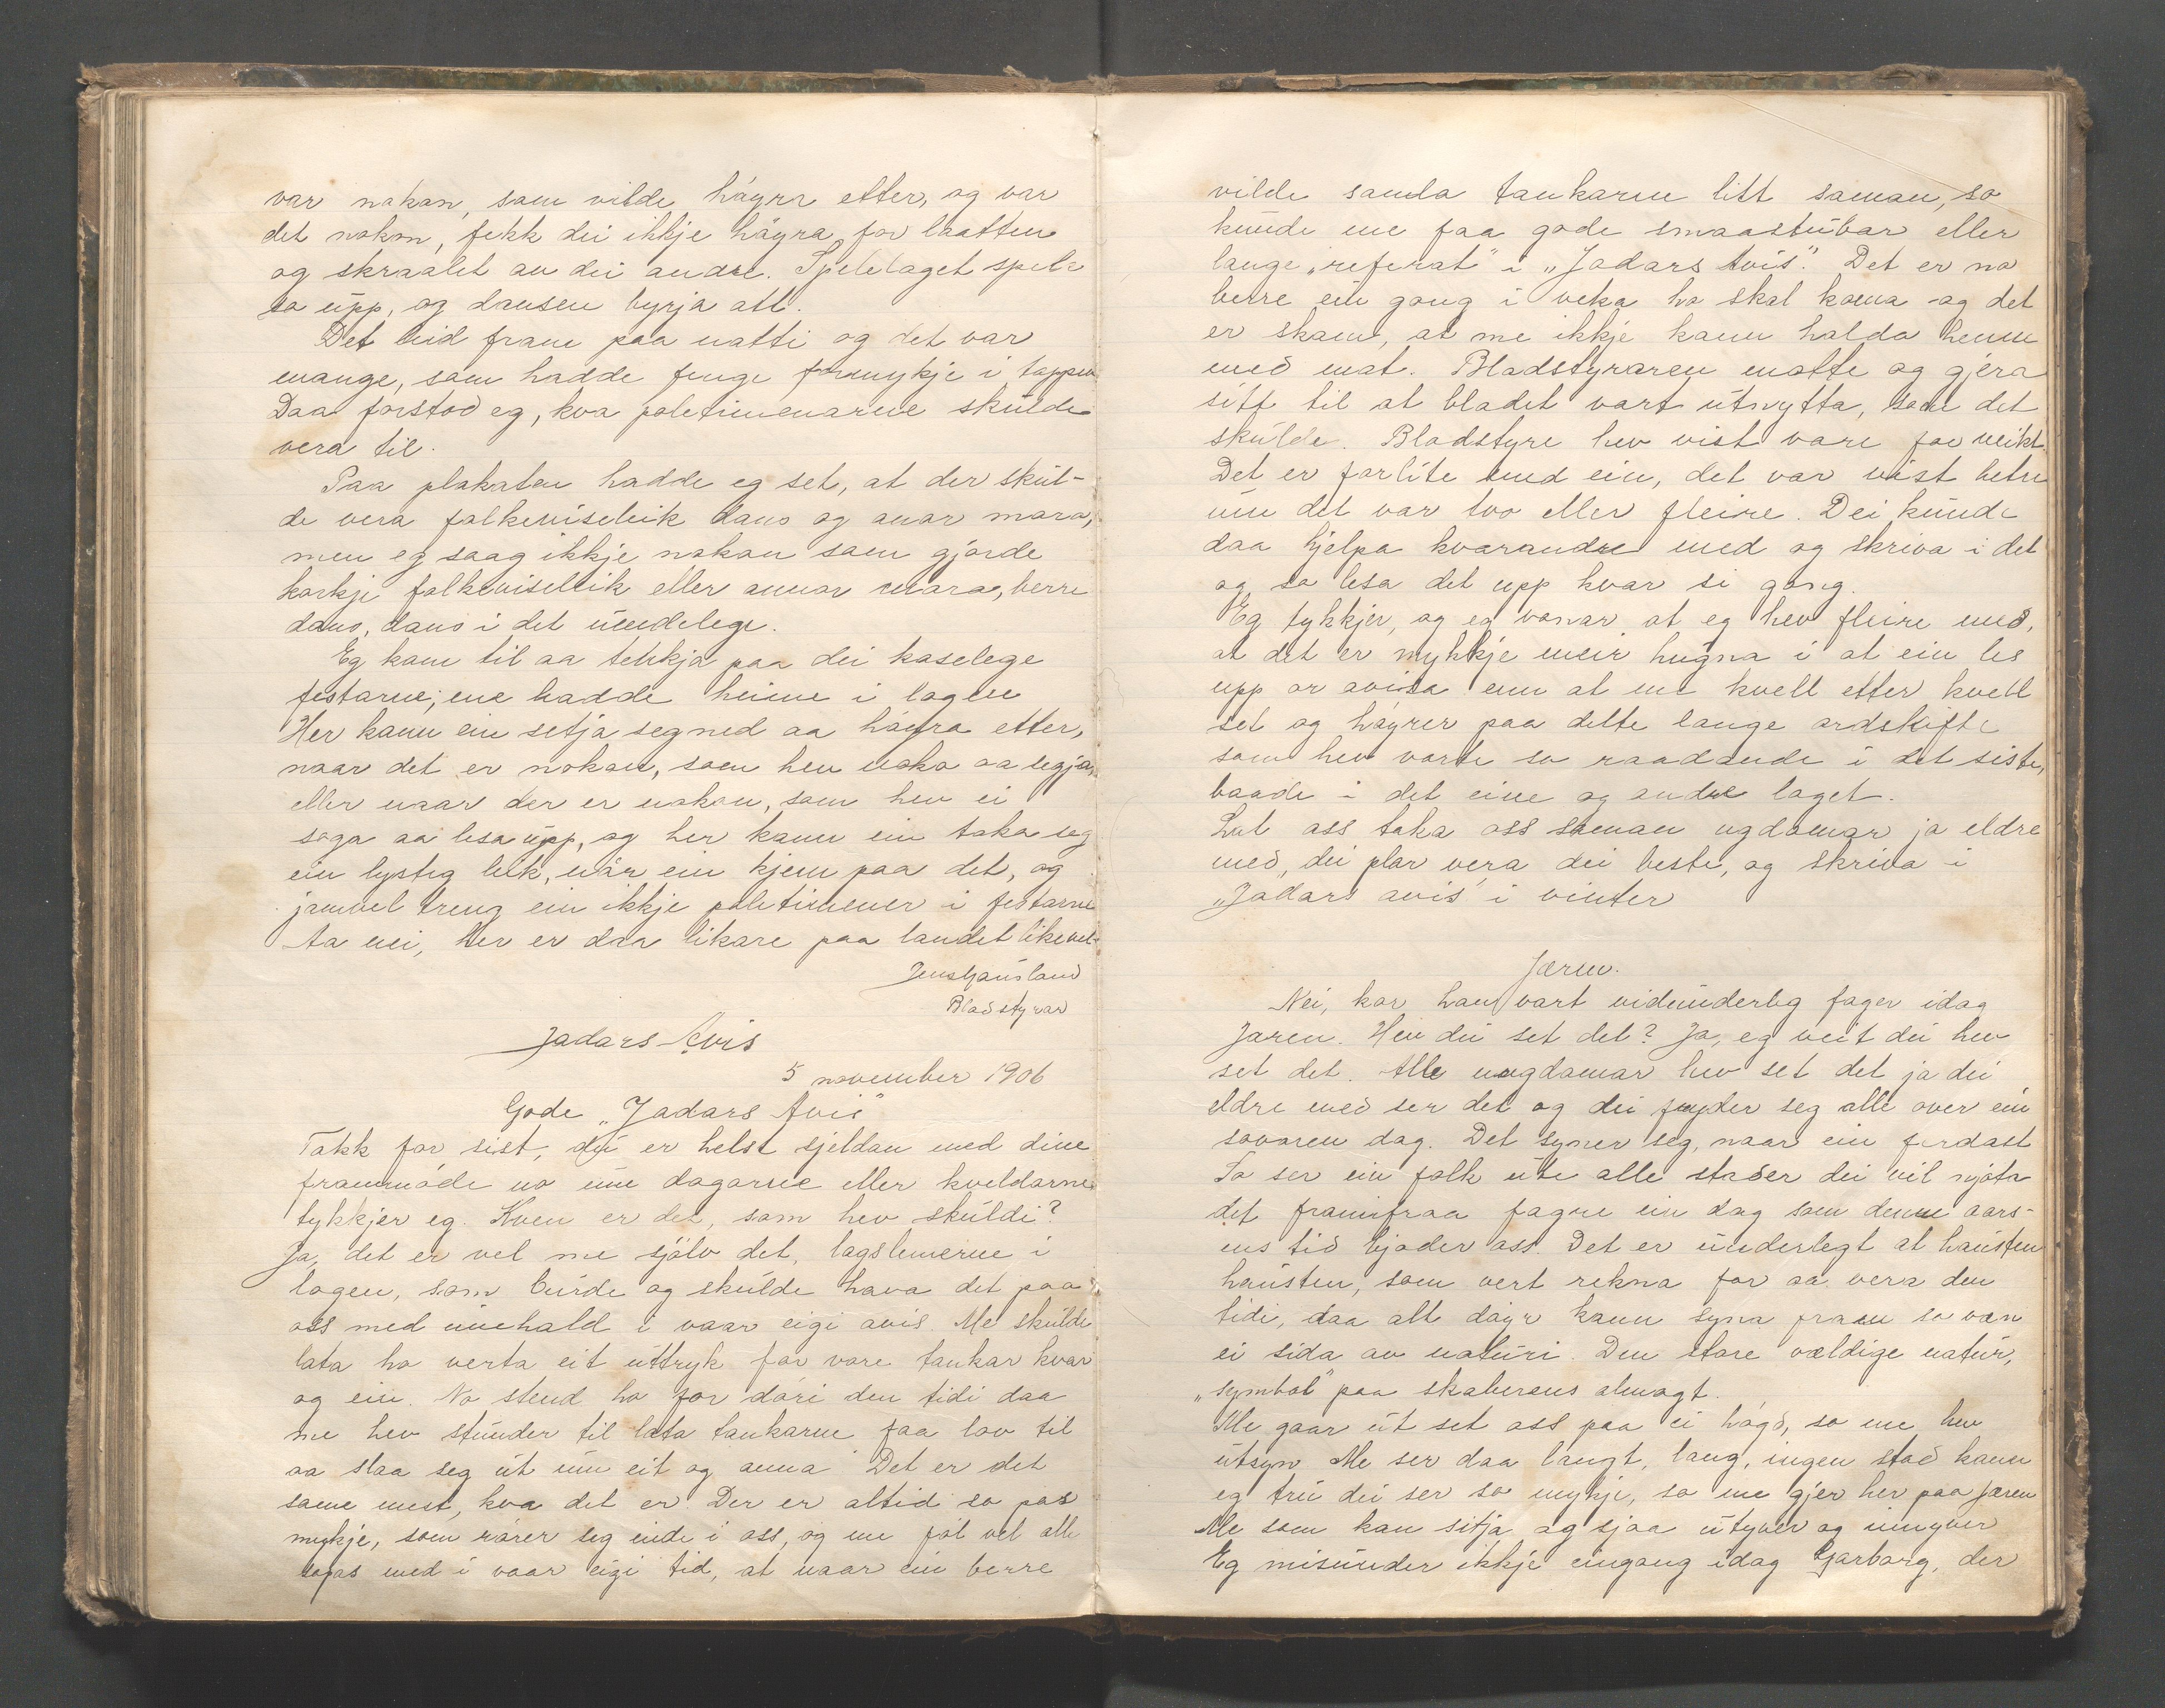 var nokan, som vilde høyra etter, og var
det nokon, fekk dei ikkje høyra for laatten
og skraalet av dei andre. Spelelaget spela
so upp, og dansen byrja att.
Det leid fram paa natti og det var
mange, som hadde fenge formykje i toppen
Daa forstod eg, kva poletimenarne skulde
vera til.
Paa plakaten hadde eg set, at der skul-
de vera folkeviseleik dans og anar moro,
men eg saag ikkje nokan som gjorde
korkje folkeviseleik eller annar moro, berre
dans, dans i det uendelege.
Eg kom til aa tenkja paa dei koselege
festarne, me hadde heime i lagen
Her kann ein setja seg ned aa høyra etter,
naar det er nokon, som hev noko aa segja,
eller naar der er nokon, som hev ei
soga aa lesa upp, og her kann ein taka seg
ein lysteg leik, når ein kjem paa det, og
jamvel treng ein ikkje poletimener i festarne
Aa nei, her er daa likare paa landet likevel.
Jens Hausland
Bladstyrar
Jadars Avis
5 november 1906
Gode „Jadars Avis"
Takk for sist, du er helst sjeldan med dine
frammøde no um dagarne eller kveldarne
tykkjer eg. Kven er det, som hev skuldi?
Ja, det er vel me sjølv det, lagslemerne i
lagen, som burde og skulde hava det paa
oss med innehald i vaar eigi avis. Me skulde
lata ho verta eit uttryk for vore tankar kvar
og ein. No stend ho for døri den tidi daa
me hev stunder til lata tankarne faa lov til
aa slaa seg ut um eit og anna. Det er det
same mest, kva det er. Der er altid so pas
mykje, som rører seg inde i oss, og me føl vel alle
sopas med i vaar eigi tid, at naar ein berre
vilde samla tankarne litt saman, so
kunde me faa gode smaastubar eller
lange „referat" i „Jadars Avis". Det er no
berre ein gong i veka ho skal koma og det
er skam, at me ikkje kann halda henne
med mat. Bladstyraren maatte og gjera
sitt til at bladet vart utnytta, som det
skulde. Bladstyre hev vist vore for veikt
Det er forlite med ein, det var vist betre
um det var tvo eller fleire. Dei kunde
daa hjelpa kvarandre med og skriva i det
og so lesa det upp kvar si gong.
Eg tykkjer, og eg vonar at eg hev fleire med,
at det er mykkje meir hugna i at ein les
upp or avisa enn at me kvell etter kvell
set og høyrer paa dette lange ordskifte
som hev vorte so raadande i det siste,
baade i det eine og andre laget.
Lat oss taka oss saman ugdomar ja eldre
med, dei plar vera dei beste, og skriva i
„Jadars avis" i vinter
Jæren.
Nei, kor han vart vidunderleg fager idag
Jæren. Hev du set det? Ja, eg veit du hev
set det. Alle ungdomar hev set det ja dei
eldre med ser det og dei fryder seg alle over ein
sovoren dag. Det syner seg, naar ein ferdast
So ser ein folk ute alle stader dei vil njota
det framifraa fagre ein dag som denne aars-
ens tid bjoder oss. Det er underlegt at hausten
hausten, som vert rekna for aa vera den
tidi, daa alt døyr kann syna fram so væn
ei sida av naturi. Den store vældige natur,
„symbol" paa skaberens almagt.
Me gaar ut set oss paa ei høgd, so me hev
utsyn. Me ser daa langt, lang, ingen stad kann
eg tru dei ser so mykje, so me gjer her paa Jæren
Me som kan sitja og sjaa utyver og innyver
Eg misunder ikkje eingong idag Garborg, der